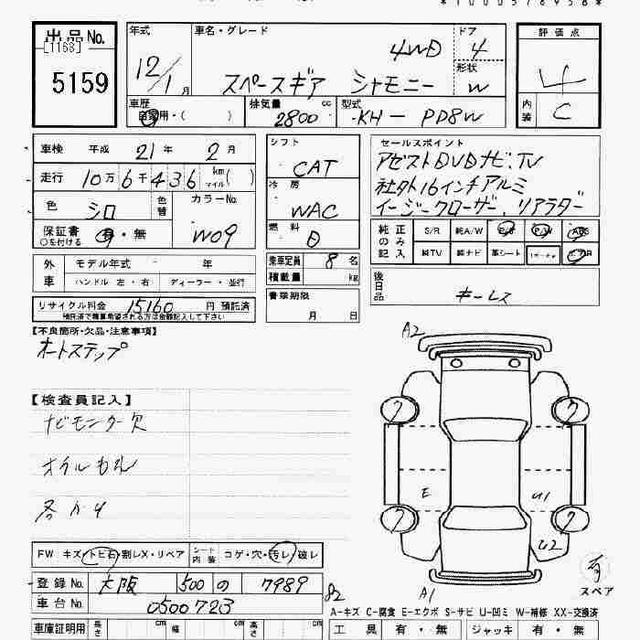 *1000578958*
出品No.
[1168]
5159
年式
12/1月
車名・グレード
4WD
スペースギア シャモニー
ドア
4
形状
W
評価点
4
内装
C
車歴
自家用・( )
排気量
2800 cc
型式
KH-PD8W
車検 平成 21年 2月
走行 10万6千436 km マイル( )
色
シロ
色替
カラーNo.
W09
保証書
○を付ける
有・無
シフト
CAT
冷房
WAC
燃料
乗車定員 8名
積載量 kg
セールスポイント
アゼストDVDナビ、TV
社外16インチアルミ
イージークローザー リアラダー
純正のみ記入
S/R 純A/W P/S P/W ABS
純TV 純ナビ 革シート
外車
モデル年式 - 年
ハンドル 左・右 ディーラー・並行
リサイクル料金 15160 円 預託済
預託済で精算希望される方は金額記入して下さい
書類期限
月 日
後日品
キーレス
【不良箇所・欠品・注意事項】
オートステップ
A2
【検査員記入】
ナビモニター欠
オイルもれ
E
U1
U2
FW キズ・トビ石・割レX・リペア
シート内装 コゲ・穴・汚レ・破レ
登録No. 大阪 500 の 7989
車台No. 0500723
A1
スペア
A-キズ C-腐食 E-エクボ S-サビ U-凹ミ W-補修 XX-交換済
車庫証明用 長さ cm 幅 cm 高さ cm
工具 有・無 ジャッキ 有・無